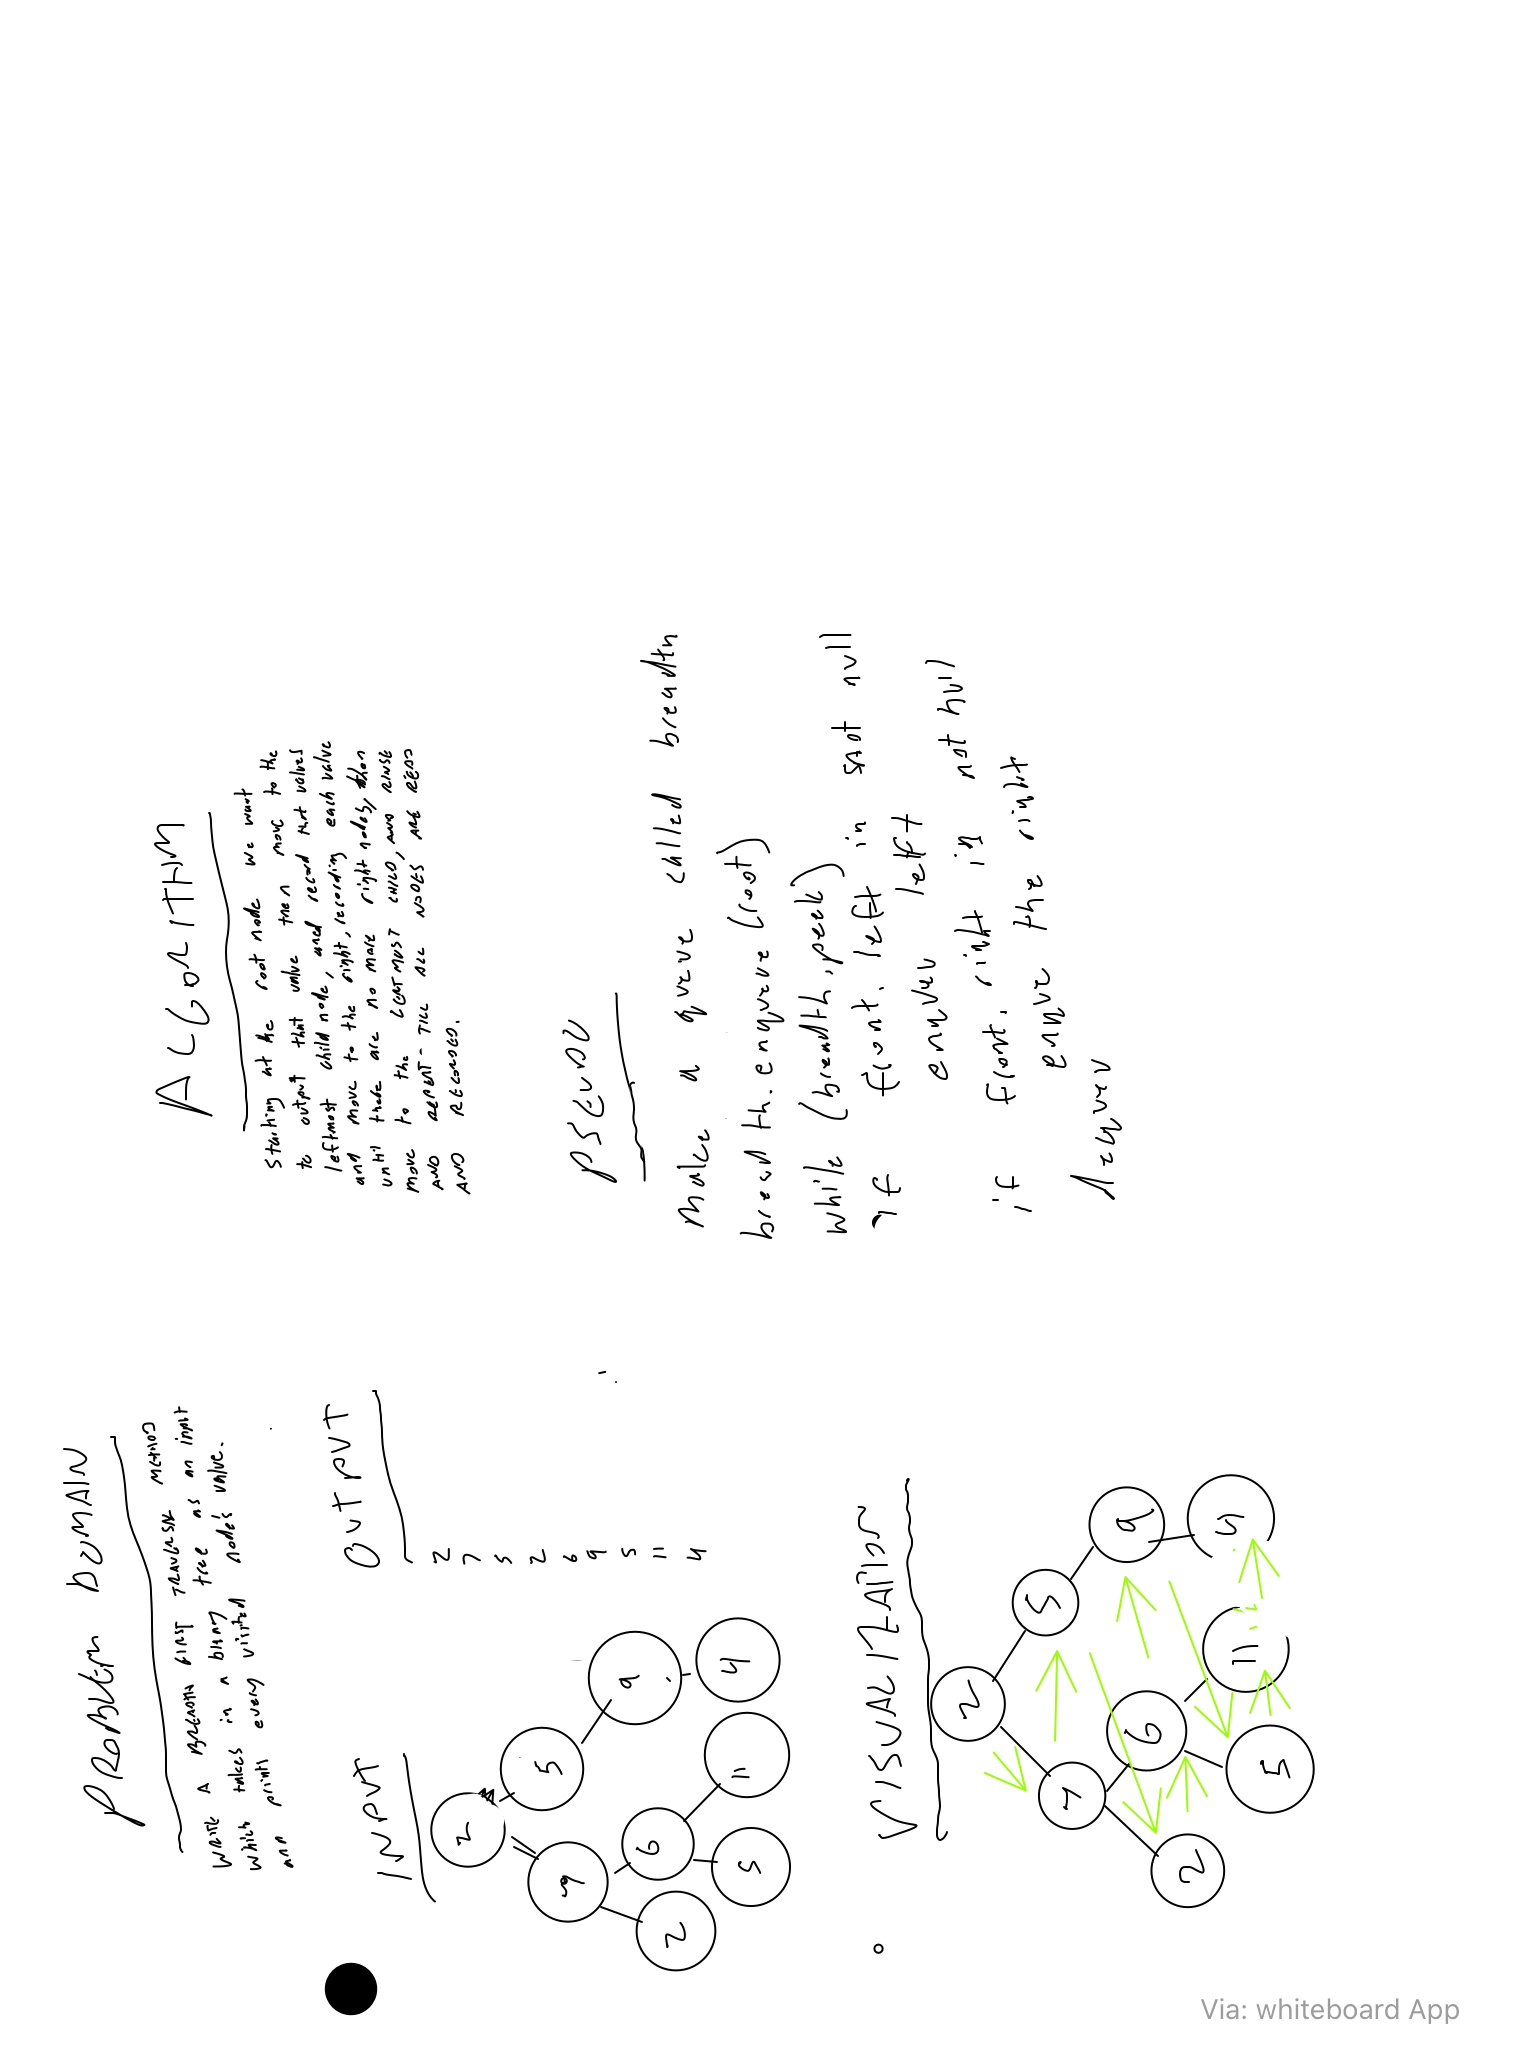 PROBLEM DOMAIN
WRITE A BREADTH FIRST TRAVERSE METHOD
which takes in a binary tree as an input
AND prints every visited node's value.
INPUT
2
7
5
2
6
9
5
11
4
OUTPUT
2
7
5
2
6
9
5
11
4
VISUALIZATION
2
7
5
2
6
9
5
11
4
ALGORITHM
Starting at the root node we want
to output that value then move to the
leftmost child node, and record that values
and move to the right, recording each value
until there are no more right nodes, then
move to the LEFTMOST CHILD, AND RINSE
AND REPEAT TILL ALL NODES ARE READ
AND RECORDED.
PSEUDO
Make a queue called breadth
breadth.enqueue(root)
while (breadth.peek)
if front.left is not null
enqueu left
if front.right is not null
enque the right
dequeu
Via: whiteboard App